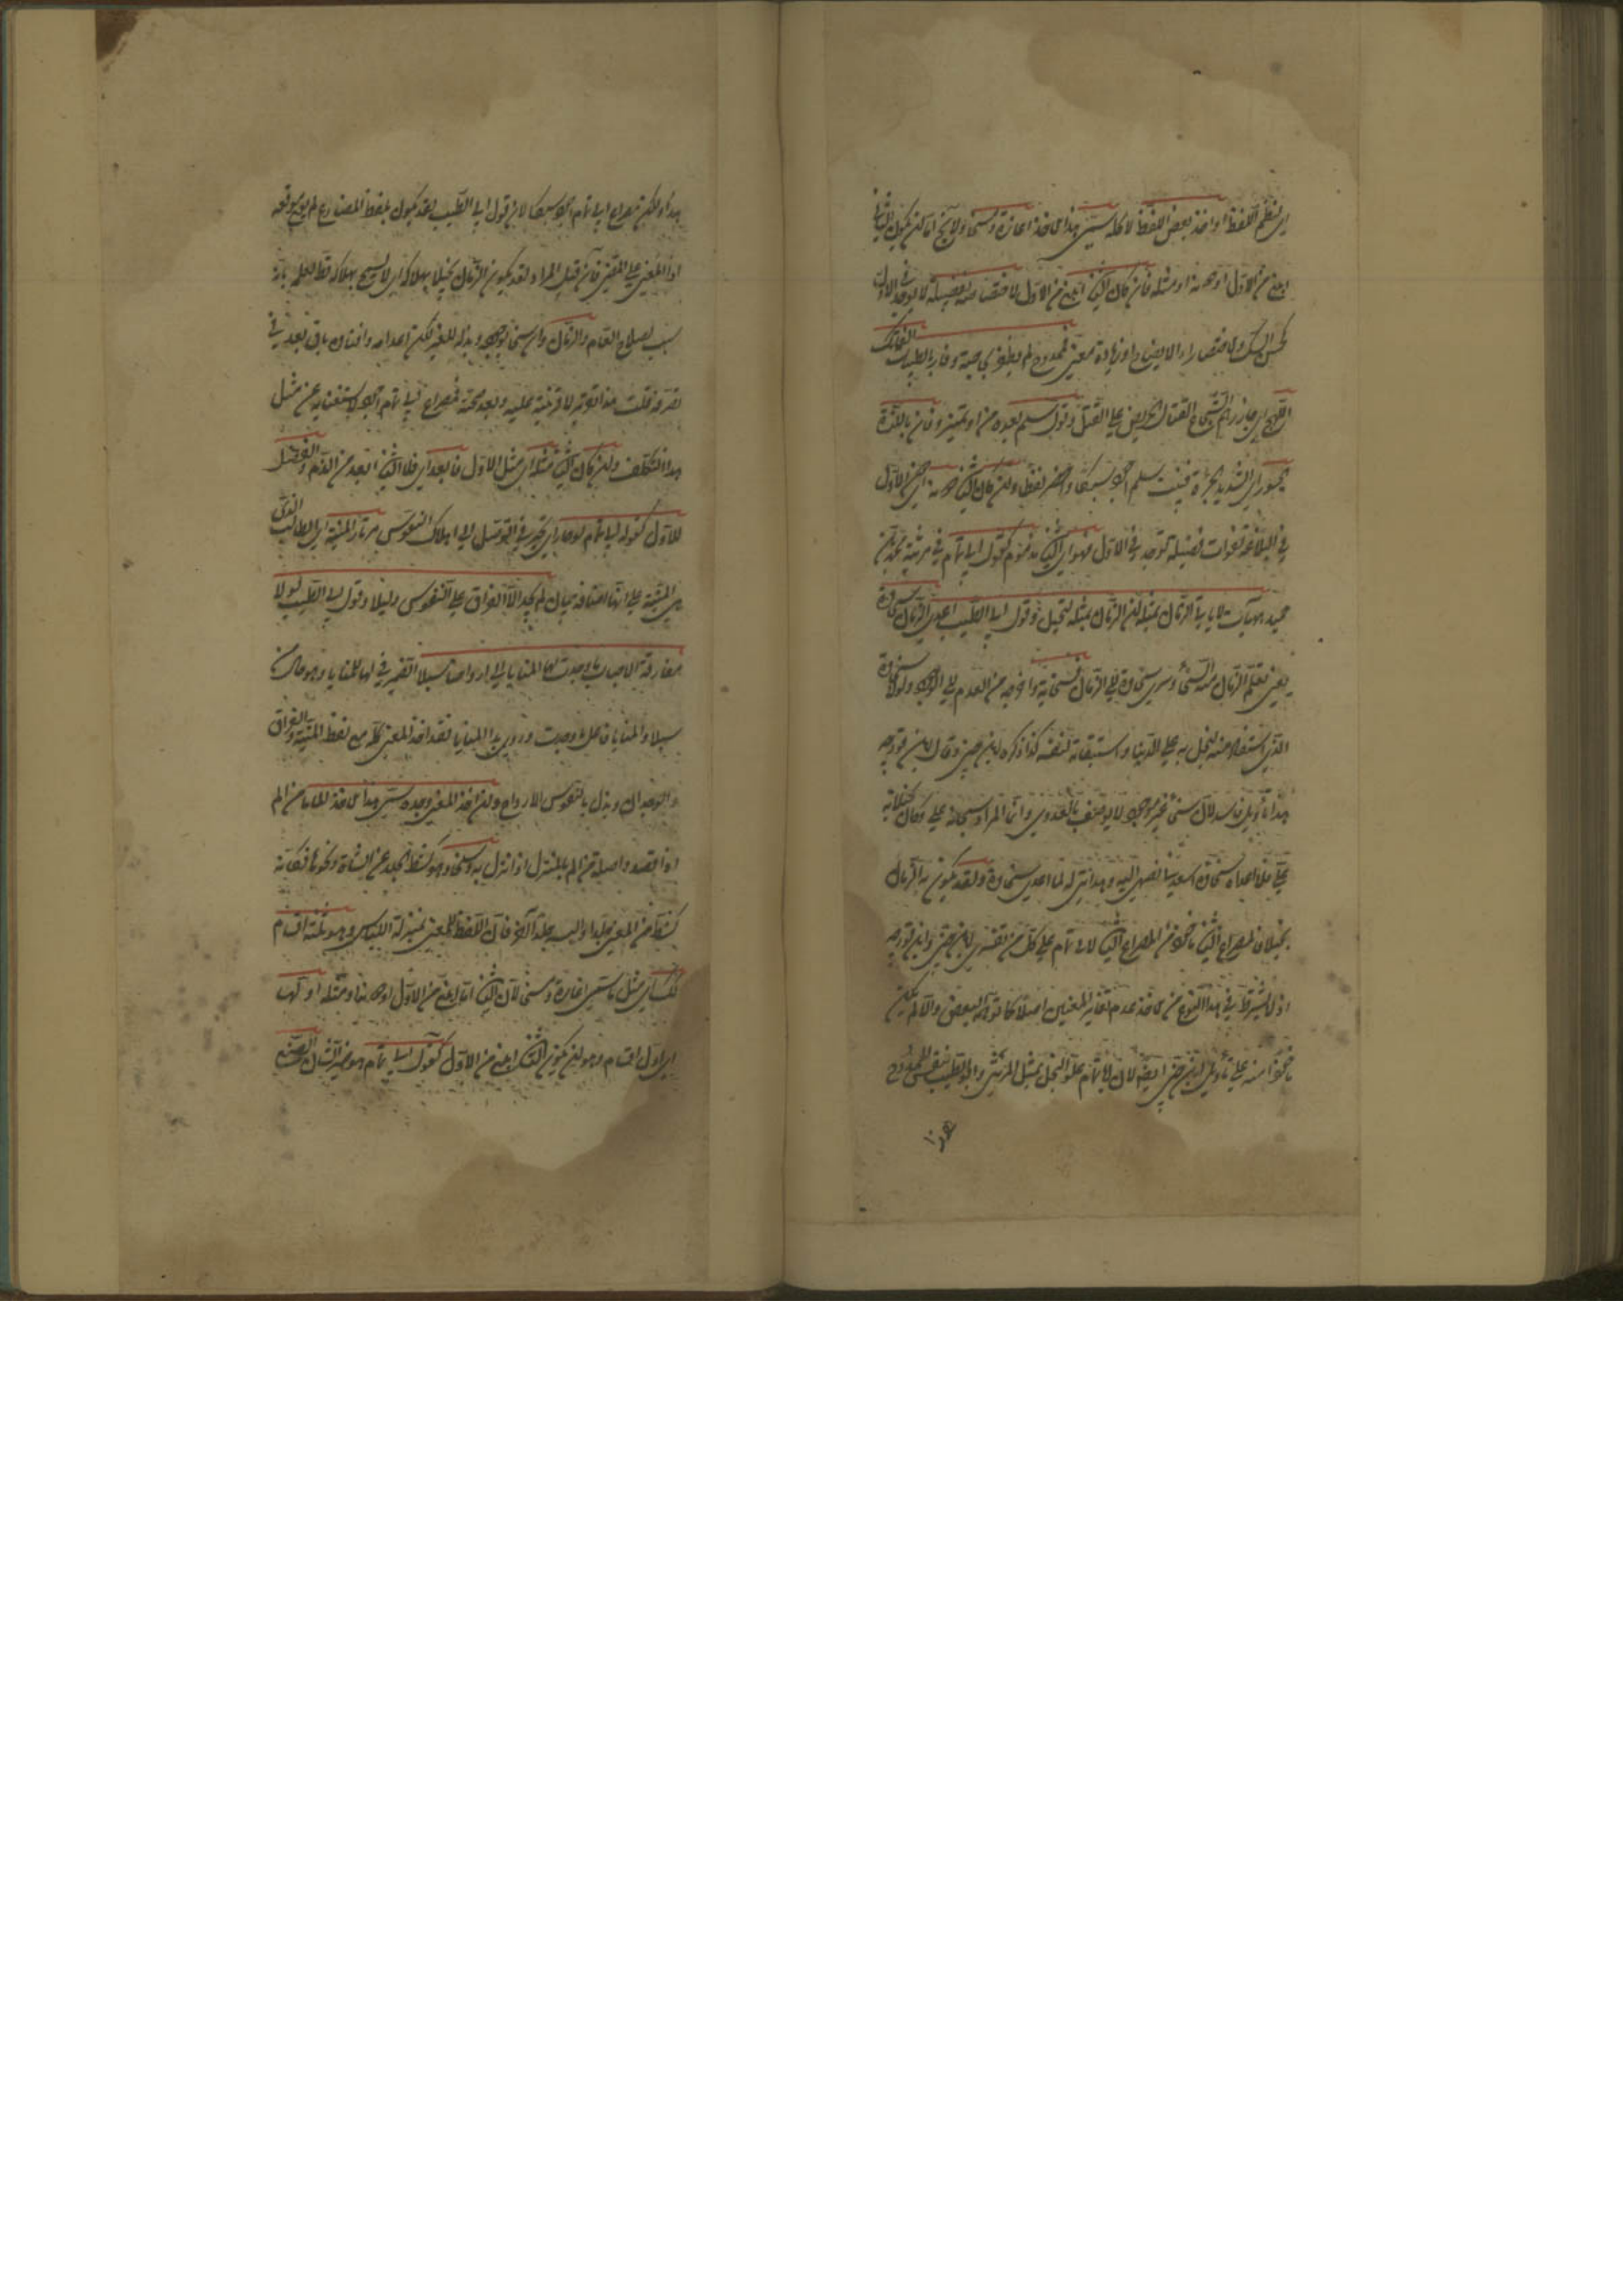 اي لنظم اللفظ او اخذ بعض اللفظ لا كله سمّي هذا الاخذ اغارة ومسخا ولا يخ اما ان يكون الثاني
ابلغ من الاول او دونه او مثله فان كان الثاني ابلغ من الاول لاختصاصه بفضيلة لا توجد في الاول
كحسن السبك والاختصار او الايضاح او زيادة معنى فممدوح لم يظفر بحاجته وفاز بالطيبات الفاتك
اللهج اي الشجاع القتال الحريص على القتل وقول سلم بعده وفاز باللذة
الجسور اي الشديد الجرأة فبيت سلم اجود سبكا واخصر لفظا وان كان الثاني دونه اي دون الاول
في البلاغة لفوات فضيلة توجد في الاول فهو اي الثاني مذموم كقول ابي تمام في مرثية محمد بن
حميد هيهات لا يأتي الزمان بمثله ان الزمان بمثله لبخيل وقول ابي الطيب اعدى الزمان سخاؤه
يعني تعلم الزمان منه السخاء وسرى سخاؤه الى الزمان فسخا به واخرجه من العدم الى الوجود ولولا سخاؤه
الذي استفاد منه لبخل به على الدنيا واستبقاه لنفسه كذا ذكره ابن جني وقال ابن فورجه
هذا تأويل فاسد لان سخاء غير موجود لا يوصف بالعدوى وانما المراد سخا به علي وكان بخيلا به
علي فلما اعداه سخاؤه اسعدني بضمي اليه وهدايتي له لما اعدى سخاؤه ولقد يكون به الزمان
بخيلا فالمصراع الثاني مأخوذ من المصراع الثاني لابي تمام على كل من تفسيري ابن جني وابن فورجه
اذ لا يشترط في هذا النوع من الاخذ عدم تغاير المعنيين اصلا كما توهمه البعض والا لم يكن
مأخوذا منه على تأويل ابن جني ايضا لان ابا تمام علق البخل بمثل المرثي وابو الطيب بنفس الممدوح
هذا
هذا ولكن مصراع ابي تمام اجود سبكا لان قول ابي الطيب لقد يكون بلفظ المضارع لم يقع موقعه
اذ المعنى على المضي فان قيل المراد لقد يكون الزمان بخيلا بهلاكه اي لا يسمح بهلاكه قط لعلمه بانه
سبب لصلاح العالم والزمان وان سخا بوجوده وبذله للغير لكن اعدامه وافناؤه باق بعد في
تصرفه قلت هذا تقدير لا قرينة عليه وبعد صحته فمصراع ابي تمام اجود لاستغنائه عن مثل
هذا التكلف وان كان الثاني مثله اي مثل الاول فابعد اي فالثاني ابعد من الذم والفضل
للاول كقول ابي تمام لو حار اي تحير في التوصل الى اهلاك النفوس مرتاد المنية اي الطالب الذي
هي المنية على انها اضافة بيان لم يجد الا الفراق على النفوس دليلا وقول ابي الطيب لولا
مفارقة الاحباب ما وجدت لها المنايا الى ارواحنا سبلا الضمير في لها للمنايا وهو حال من
سبلا والمنايا فاعل وجدت وروي يد المنايا فقد اخذ المعنى كله مع لفظ المنية والفراق
والوجدان وبدل بالنفوس الارواح وان اخذ المعنى وحده سمّي هذا الاخذ الماما من الم
اذا قصد واصله من الم بالمنزل اذا نزل به وسلخا وهو كشط الجلد عن الشاة ونحوها فكانه
كشط عن المعنى جلدا والبسه جلدا آخر فان اللفظ للمعنى بمنزلة اللباس وهو ثلثة اقسام
كذلك اي مثل ما سمي اغارة ومسخا لان الثاني اما ابلغ من الاول او دونه او مثله اولها
اي اول اقسام وهو ان يكون الثاني ابلغ من الاول كقول ابي تمام هو ضمير الشان الصنع